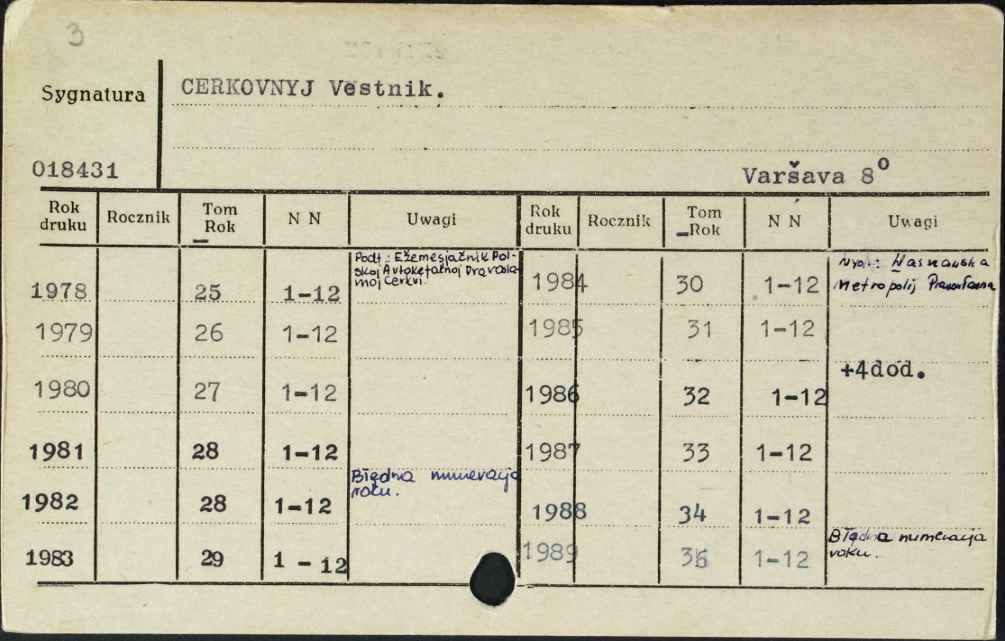 3
Sygnatura
CERKOVNYJ Vestnik.
018431
Varšava 8°
Rok druku Rocznik Tom Rok N N Uwagi Rok druku Rocznik Tom Rok N N Uwagi
1978 25 1-12 Podt.: Ežemesjačnik Pol-
skoj Avtokefalnoj Pravosla-
vnoj Cerkvi.
1984 30 1-12 Warszawska
Metropolij Prawosławna
1979 26 1-12 1985 31 1-12
1980 27 1-12 1986 32 1-12 +4dod.
1981 28 1-12 1987 33 1-12
1982 28 1-12 Błędna numeracja
roku.
1988 34 1-12
1983 29 1 - 12 1989 36 1-12 Błędna numeracja
roku.